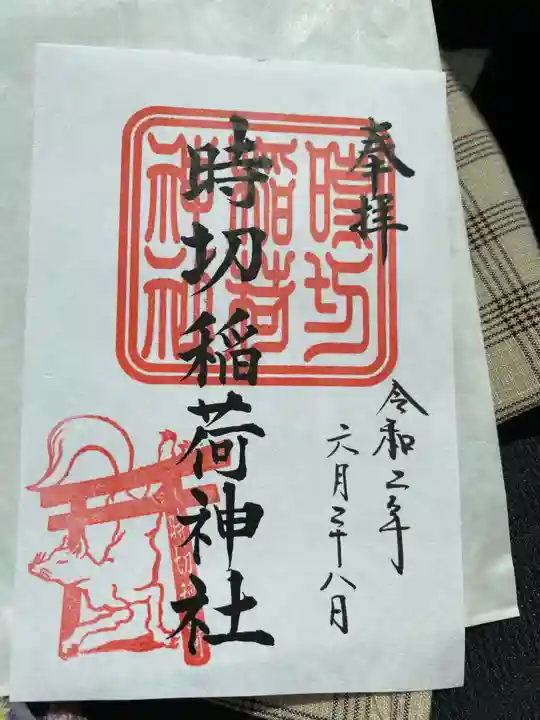 奉拝
時切稲荷神社
時切
稲荷
神社
令和二年
六月二十八日
時切稲